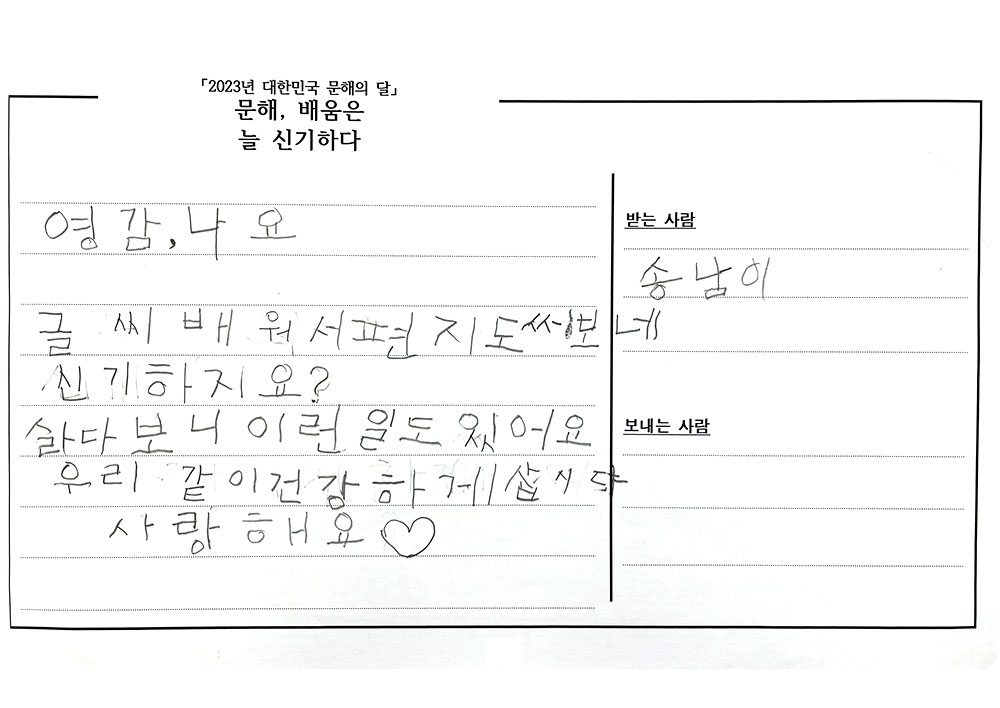 「2023년 대한민국 문해의 달」
문해, 배움은
늘 신기하다
영감, 나요
글씨 배워서 편지도 써보네
신기하지요?
살다보니 이런일도 있어요
우리 같이 건강하게 삽시다
사랑해요♡
받는 사람
송남이
보내는 사람